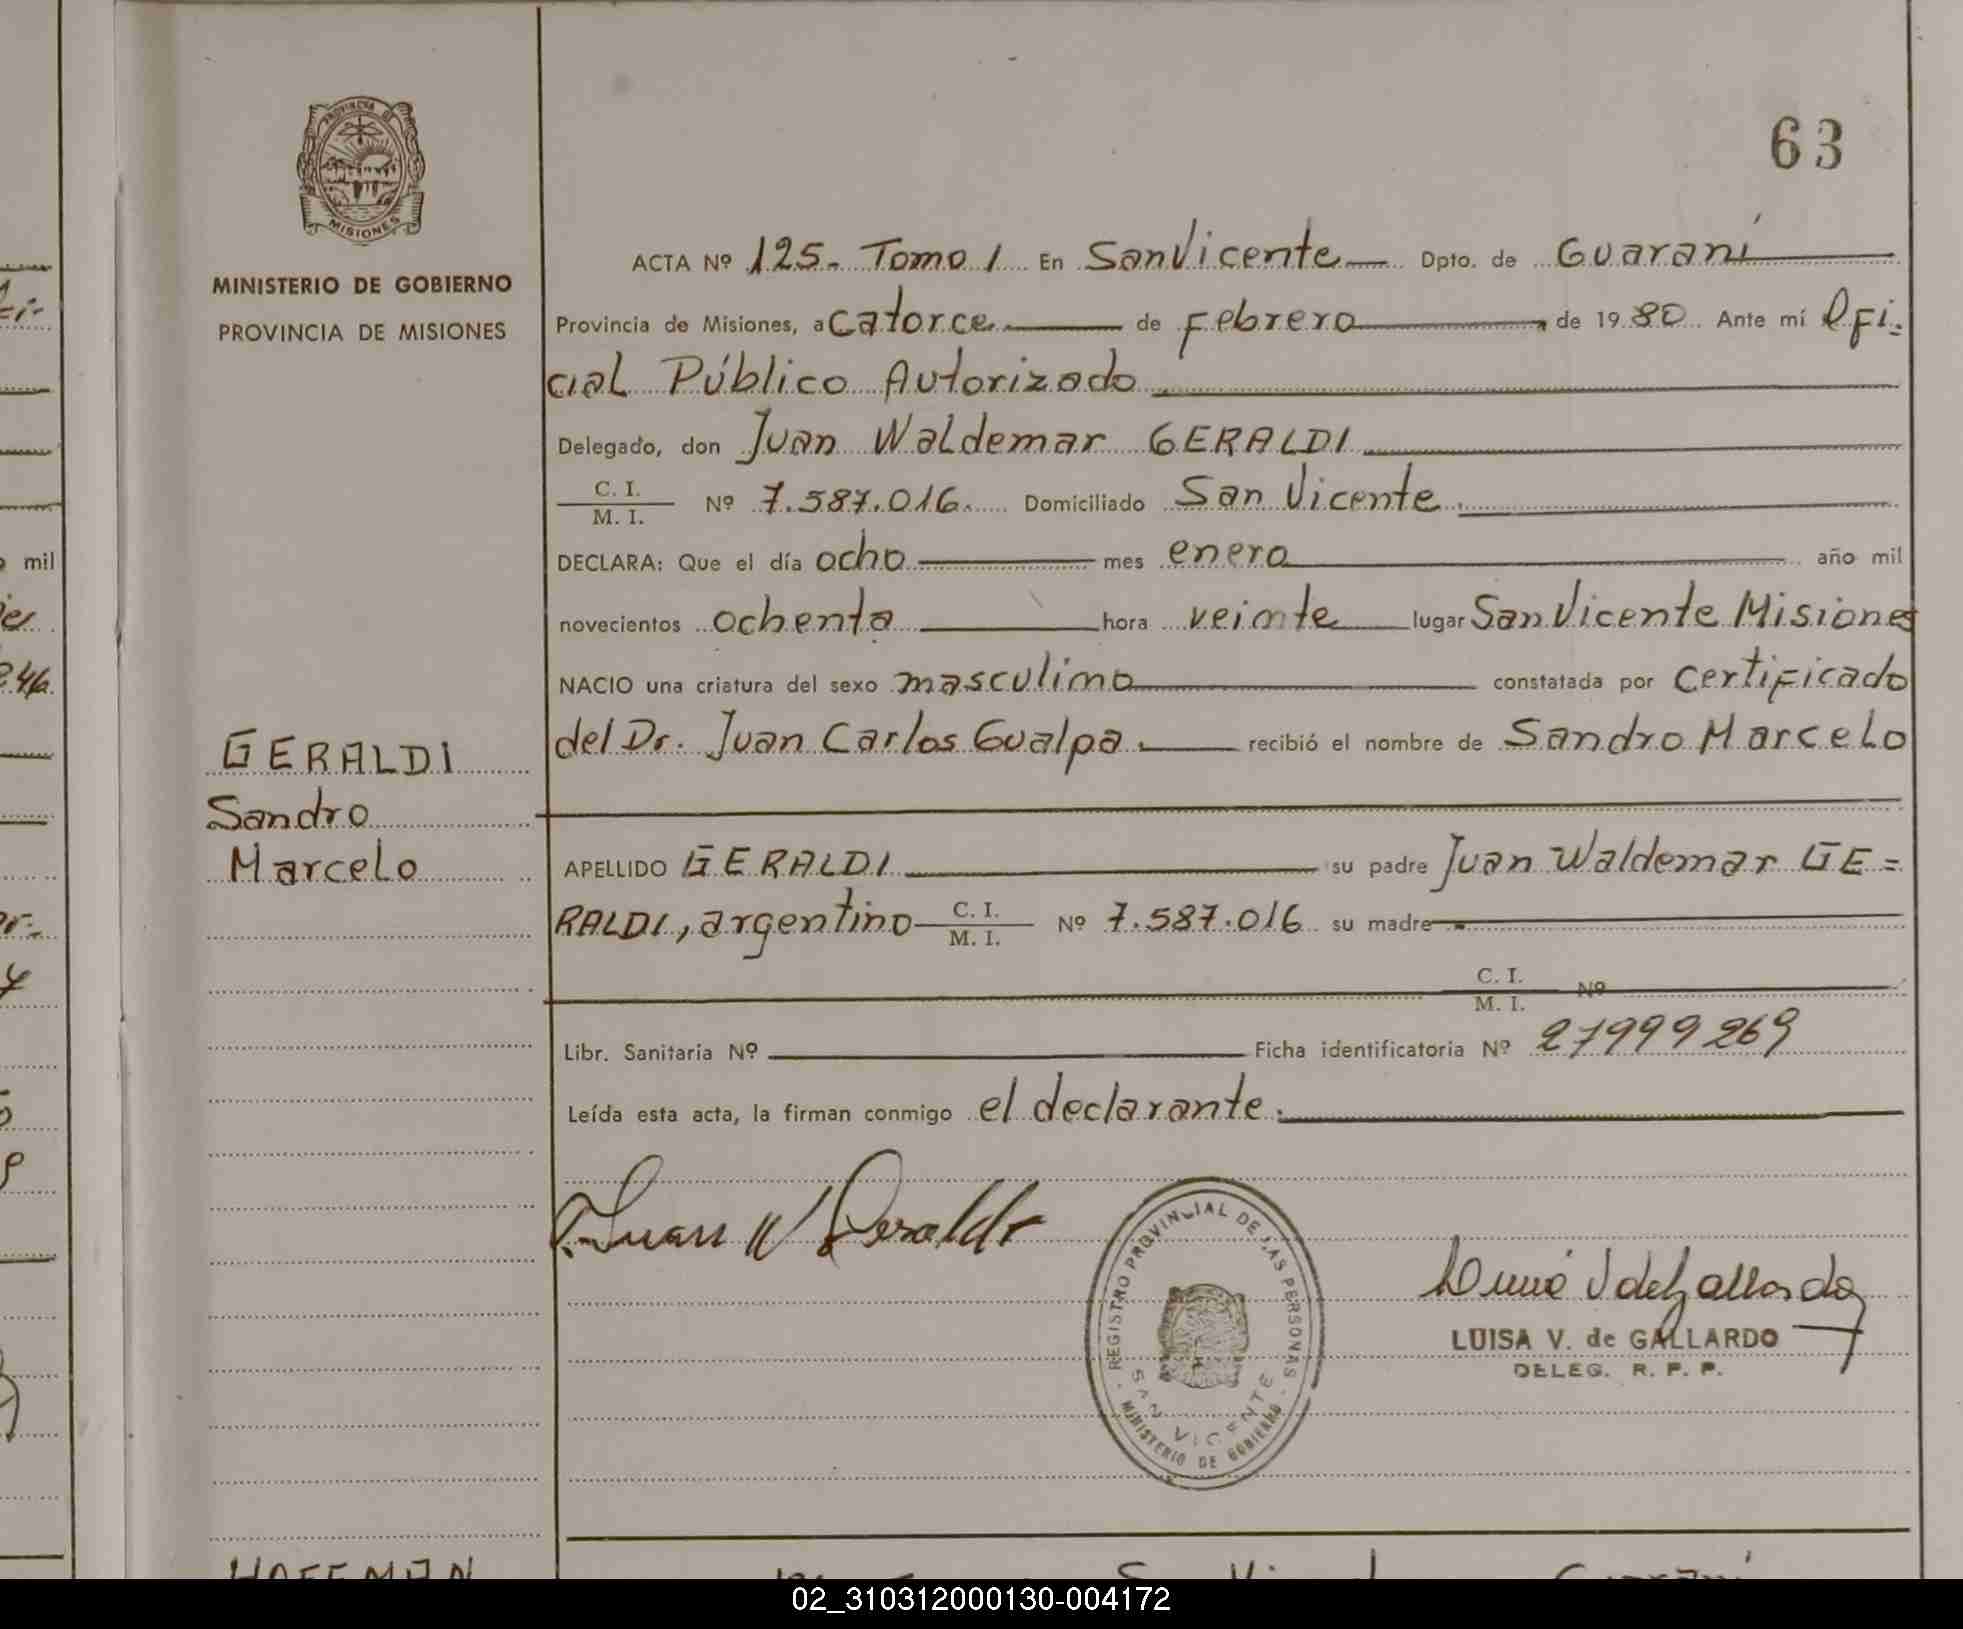 63
PROVINCIA DE
MISIONES
MINISTERIO DE GOBIERNO
PROVINCIA DE MISIONES
ACTA Nº 125. Tomo 1 En San Vicente Dpto. de Guaraní
Provincia de Misiones, a catorce de febrero de 1980. Ante mí Ofi-
cial Público Autorizado
Delegado, don Juan Waldemar GERALDI
C. I.
M. I. Nº 7.587.016. Domiciliado San Vicente.
DECLARA: Que el día ocho mes enero año mil
novecientos ochenta hora veinte lugar San Vicente Misiones
NACIO una criatura del sexo masculino constatada por certificado
del Dr. Juan Carlos Gualpa. recibió el nombre de Sandro Marcelo
GERALDI
Sandro
Marcelo
APELLIDO GERALDI su padre Juan Waldemar GE=
RALDI, argentino C. I.
M. I. Nº 7.587.016 su madre
C. I.
M. I. Nº
Libr. Sanitaria Nº Ficha identificatoria Nº 27999269
Leída esta acta, la firman conmigo el declarante.
Juan W Geraldi
REGISTRO PROVINCIAL DE LAS PERSONAS
SAN VICENTE
MINISTERIO DE GOBIERNO
Luisa V de Gallardo
LUISA V. de GALLARDO
DELEG. R. P. P.
mil
HOFFMAN
02_310312000130-004172